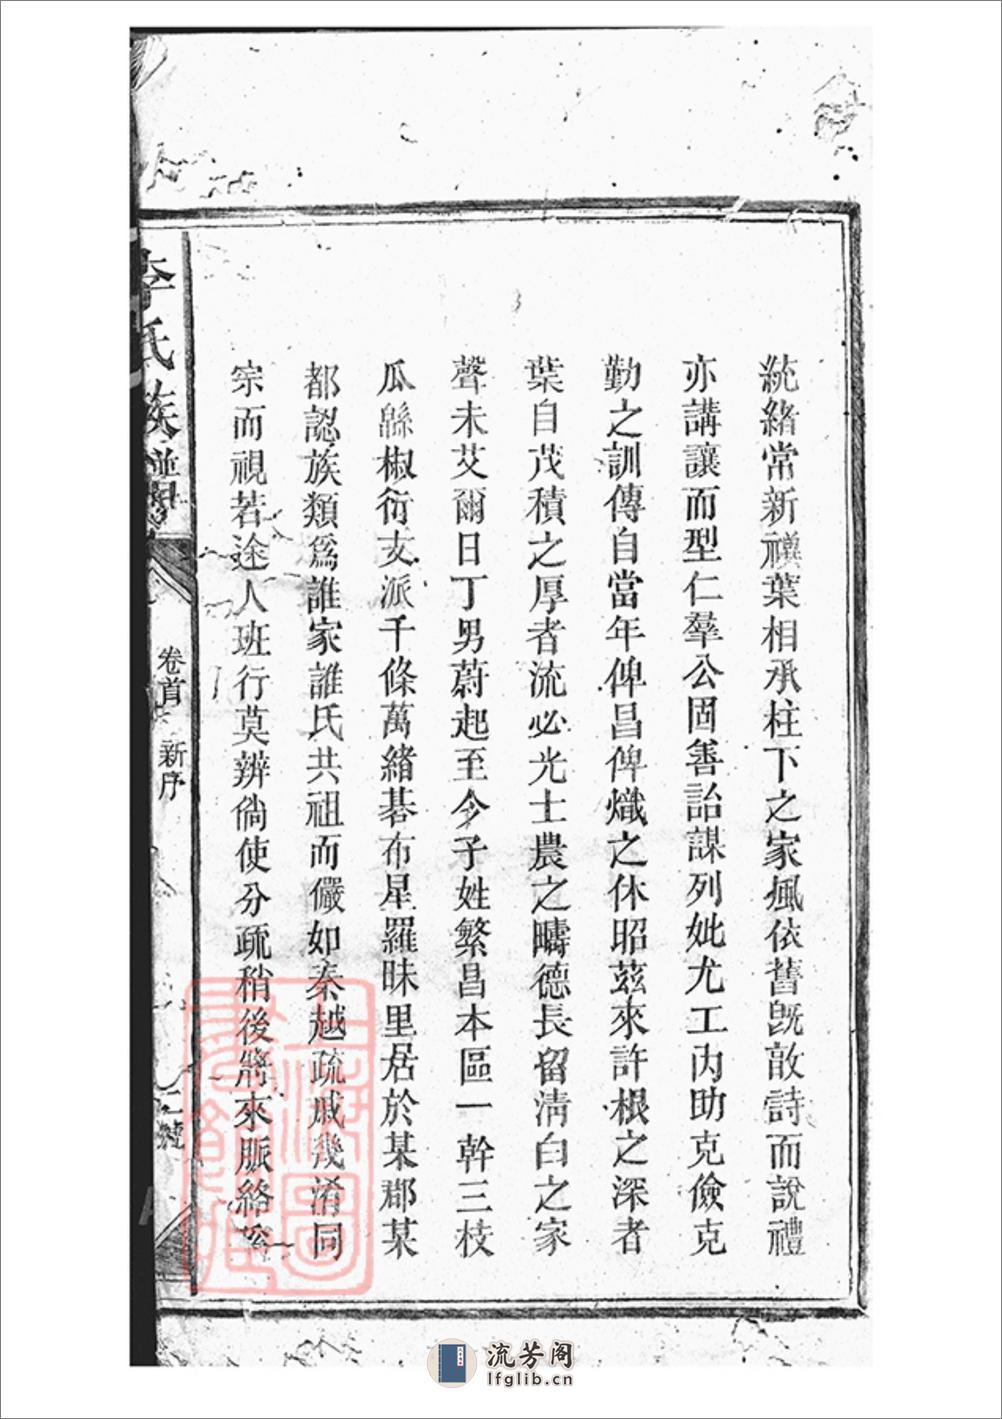 統緒常新禩葉相承柱下之家風依舊旣敢詩而說禮
亦講讓而型仁羣公固善詒謀列妣尤工內助克儉克
勤之訓傳自當年俾昌俾熾之休昭茲來許根之深者
葉自茂積之厚者流必光士農之疇德長留淸白之家
聲未艾爾日丁男蔚起至今子姓繁昌本區一幹三枝
瓜緜椒衍支派千條萬緒碁布星羅昧里居於某郡某
都認族類爲誰家誰氏共祖而儼如秦越疏戚幾淆同
宗而視若途人班行莫辨倘使分疏稍後將來脈絡
李氏族譜
卷首 新序
上海圖書館藏
流芳阁
lfglib.cn